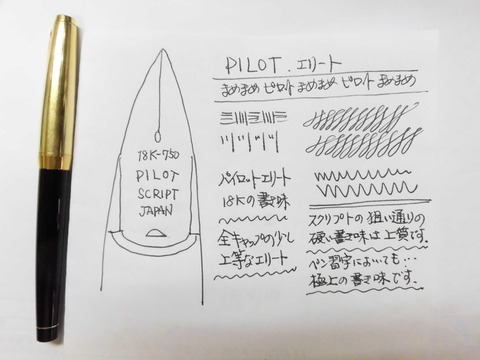 PILOT. エリート
まめまめ ピロット まめまめ ピロット まめまめ
18K-750
PILOT
SCRIPT
JAPAN
パイロットエリート
18Kの書き味
全キャップの少し
上等なエリート
スクリプトの狙い通りの
硬い書き味は上質です。
ペン習字においても…
極上の書き味です。